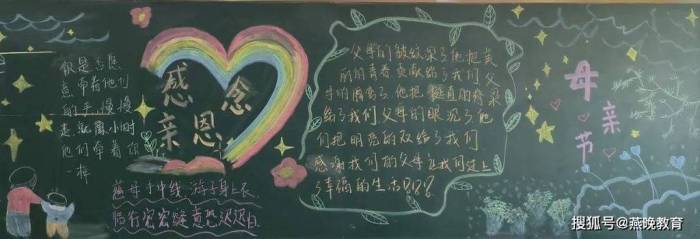 意牵着他们
的手,慢慢
走,就像小时
他们牵着你
一样
感念
亲恩
慈母手中线 游子身上衣
临行密密缝 意恐迟迟归
父母的皱纹深了他把美
丽的青春贡献给了我们父
母的腰弯了他把挺直的脊梁
给了我们父母的眼花了他
们把明亮的双给了我们
感谢我们的父母让我们过上
了幸福的生活
母亲节
搜狐号@燕晚教育